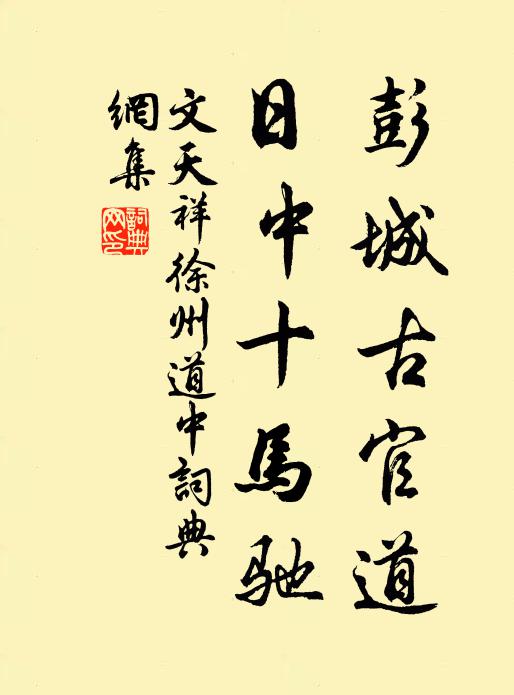 彭城古官道
日中十馬馳
文天祥徐州道中詞典
網集
詞典网印